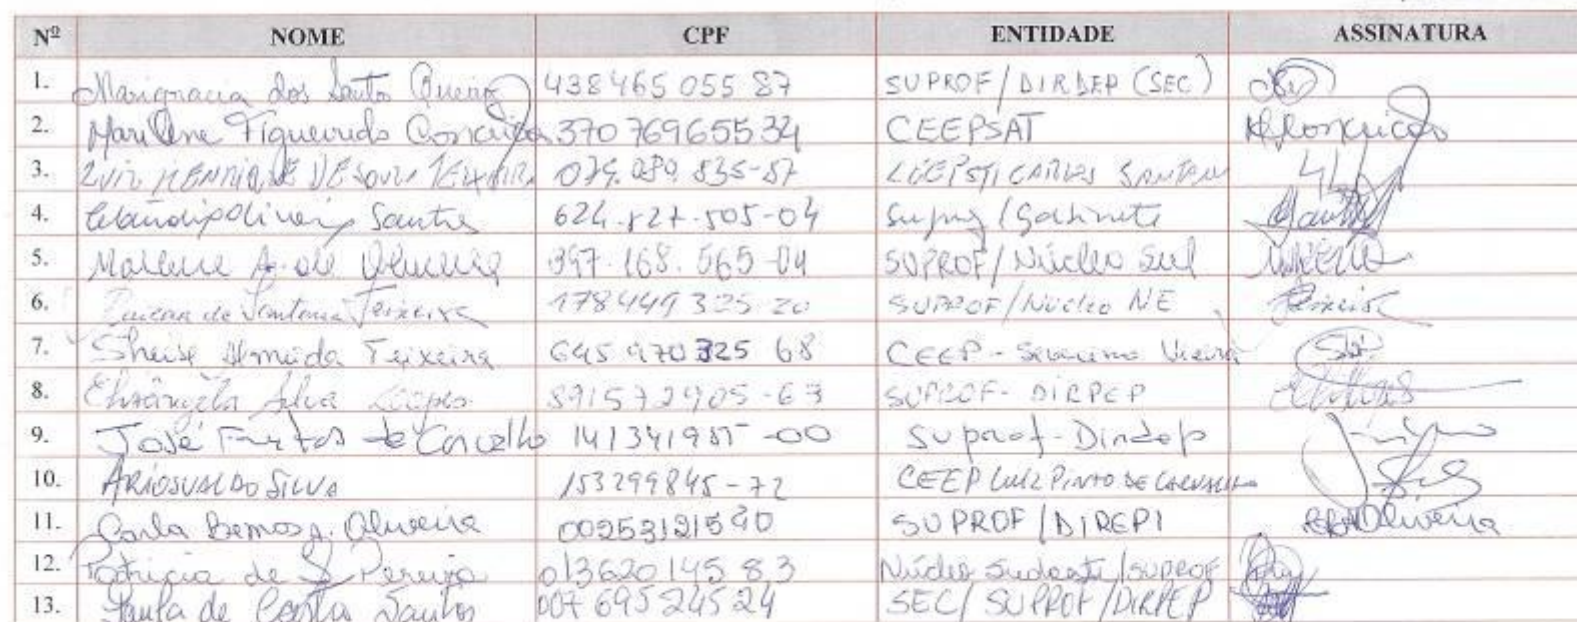 Nº NOME CPF ENTIDADE ASSINATURA
1. Marignacia dos Santos Queiroz 438465 055 87 SUPROF/DIRDEP (SEC)
2. Marilene Figueiredo Conceição 370 769655 34 CEEPSAT MFConceição
3. LUIZ HENRIQUE DE SOUZA TEIXEIRA 079.089.835-87 CEEPSTI CARLOS SANTANA
4. Claudia Oliveira Santos 624.827.505-04 Suprof/Gabinete
5. Marlene A. de Oliveira 397.168.565-04 SUPROF/Núcleo Sul
6. de Santana Teixeira 178449325-20 SUPROF/Núcleo NE Teixeira
7. Sheise Almeida Teixeira 645 970 325 68 CEEP - Severino Vieira
8. Elisângela Silva 891572905-63 SUPROF- DIRPEP
9. José Freitas de Carvalho 141341985-00 Suprof-Dirdep
10. ARIOSVALDO SILVA 153299845-72 CEEP LUIZ PINTO DE CARVALHO
11. Carla Oliveira 00253121590 SUPROF/DIREPI Oliveira
12. Patricia de S. Pereira 013620145 83 Núcleo Sudoeste/SUPROF
13. Paula de Castro Santos 007 695 245 24 SEC/ SUPROF/DIRPEP